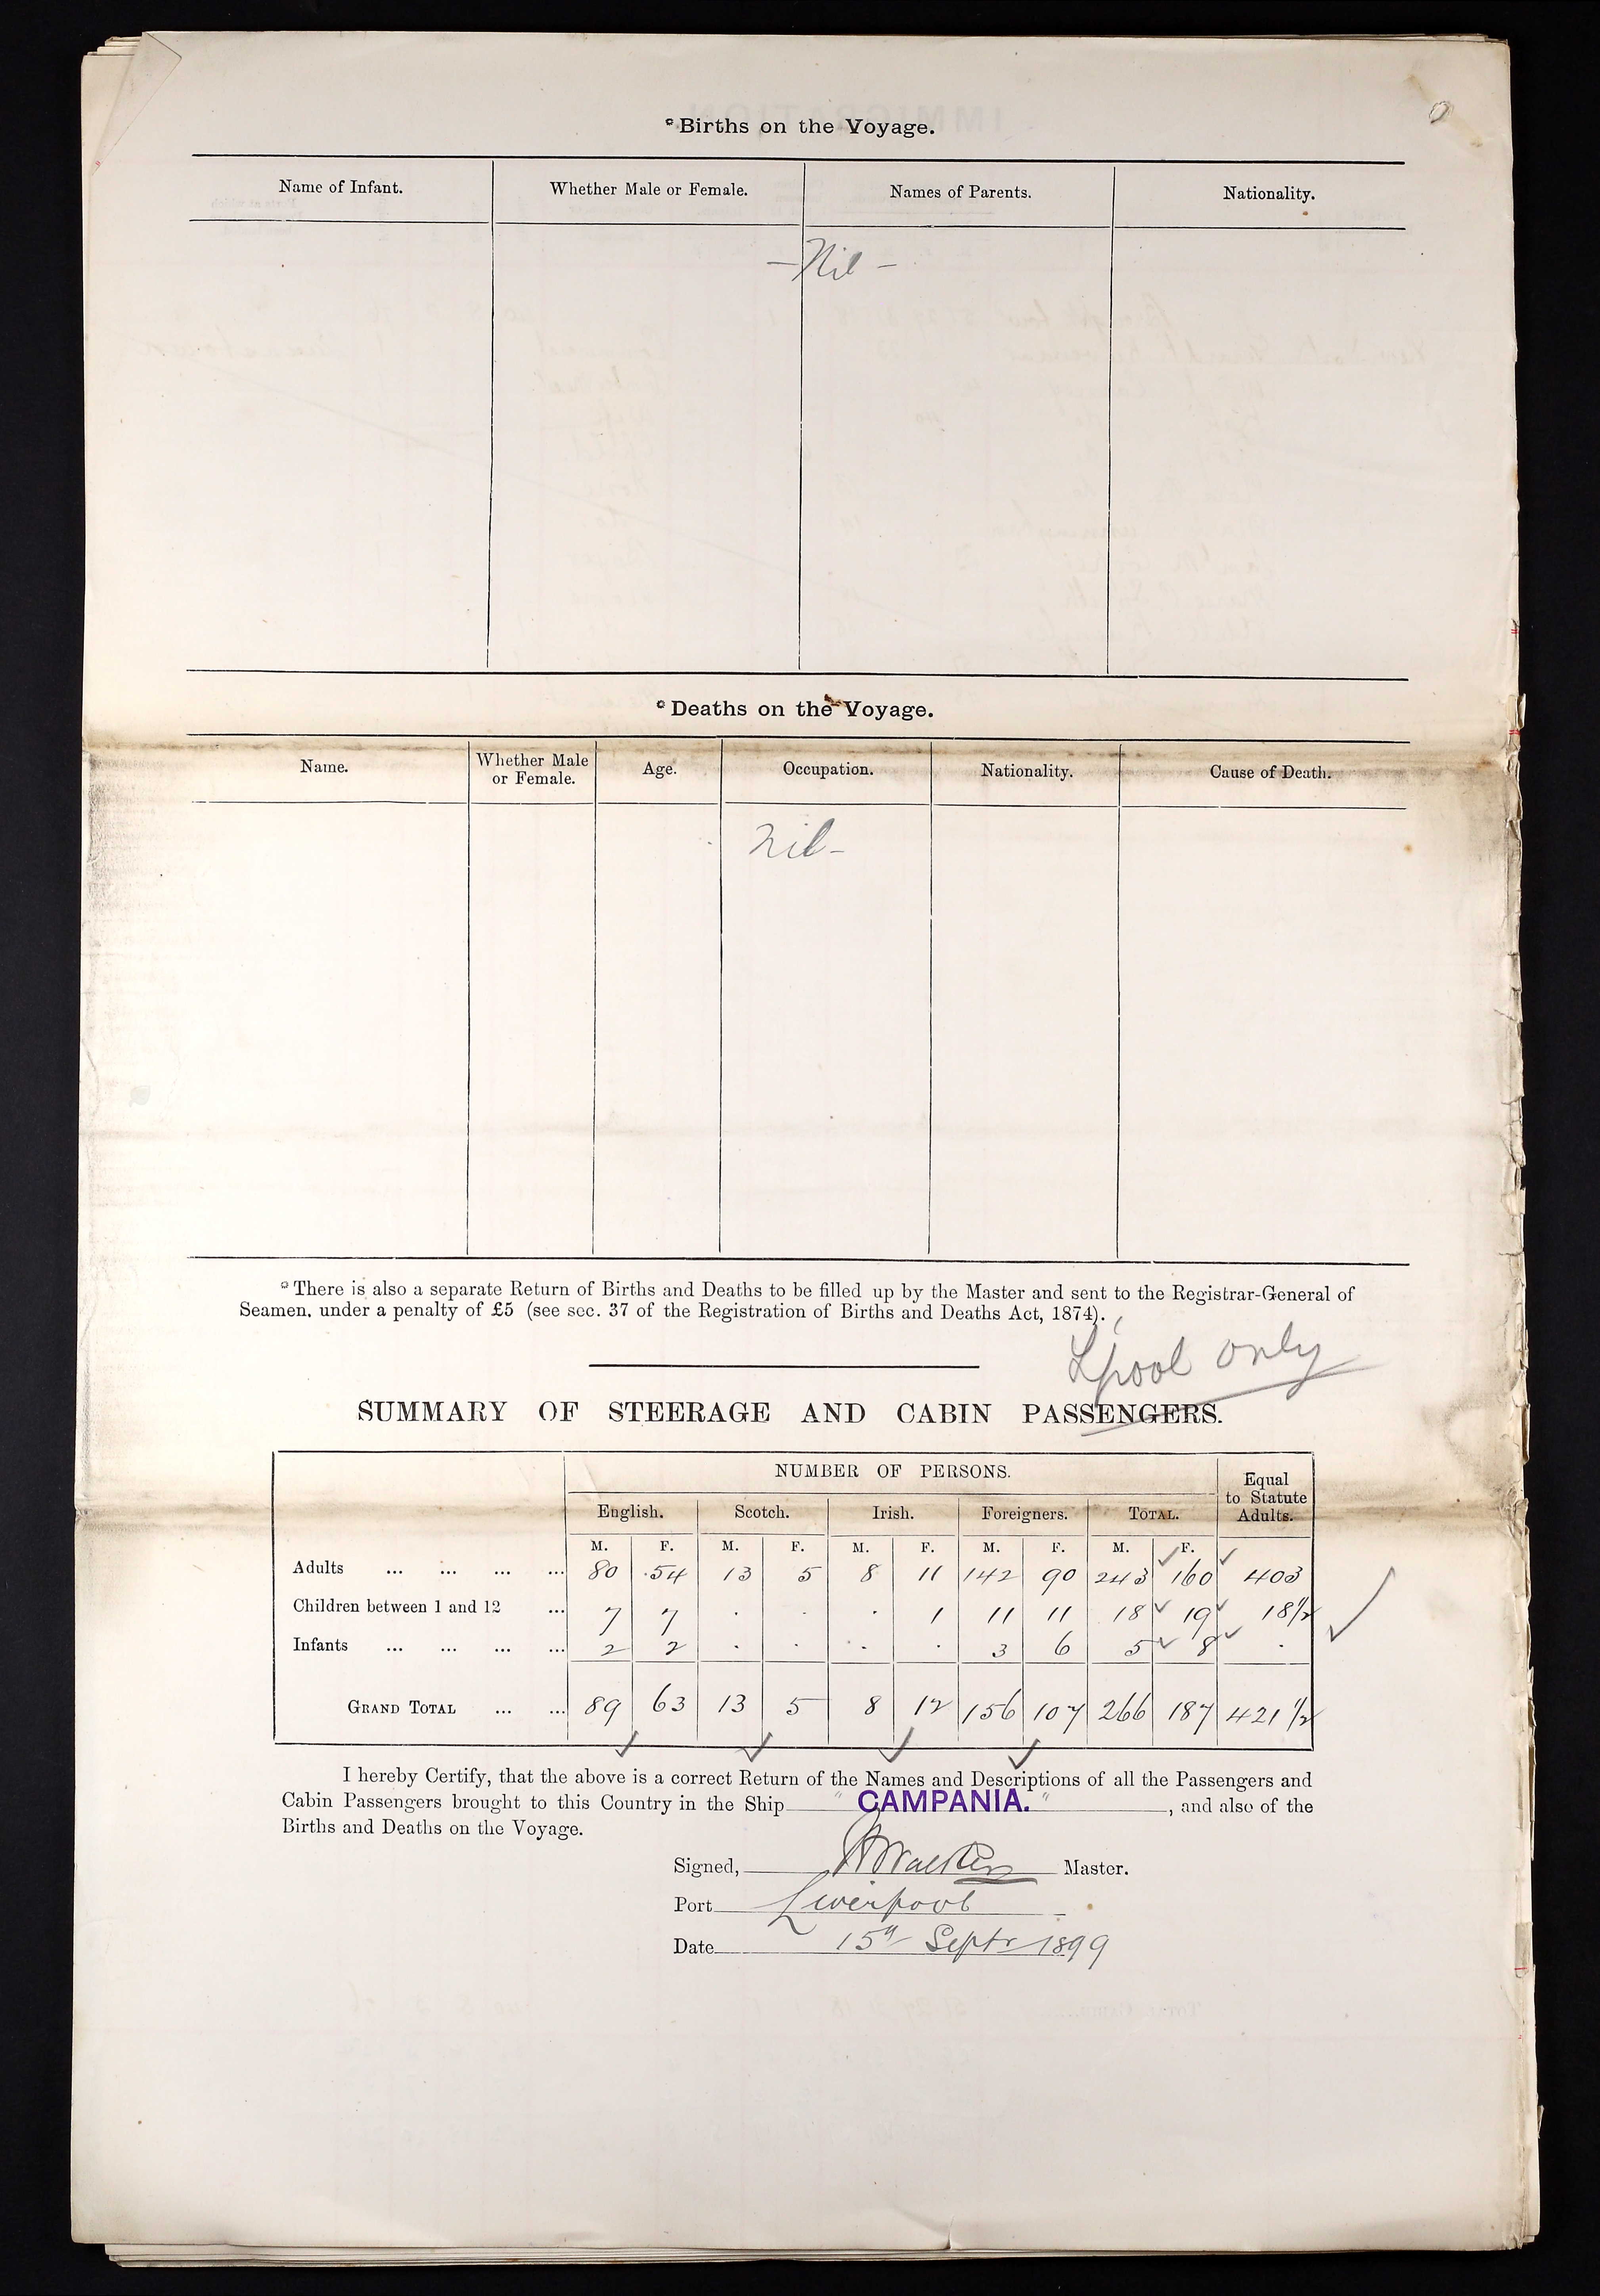 *Births on the Voyage.
Name of Infant. Whether Male or Female. Names of Parents. Nationality.
— Nil —
*Deaths on the Voyage.
Name. Whether Male or Female. Age. Occupation. Nationality. Cause of Death.
Nil –
*There is also a separate Return of Births and Deaths to be filled up by the Master and sent to the Registrar-General of
Seamen, under a penalty of £5 (see sec. 37 of the Registration of Births and Deaths Act, 1874).
Lpool only
SUMMARY OF STEERAGE AND CABIN PASSENGERS.
NUMBER OF PERSONS. Equal to Statute Adults.
English. Scotch. Irish. Foreigners. TOTAL.
M. F. M. F. M. F. M. F. M. F.
Adults ... ... ... ... 80 54 13 5 8 11 142 90 243 160 403
Children between 1 and 12 ... 7 7 . . . 1 11 11 18 19 18½
Infants ... ... ... ... 2 2 . . . . 3 6 5 8 .
GRAND TOTAL ... ... 89 63 13 5 8 12 156 107 266 187 421½
I hereby Certify, that the above is a correct Return of the Names and Descriptions of all the Passengers and
Cabin Passengers brought to this Country in the Ship " CAMPANIA. " , and also of the
Births and Deaths on the Voyage.
Signed, Master.
Port Liverpool
Date 15th Septr 1899